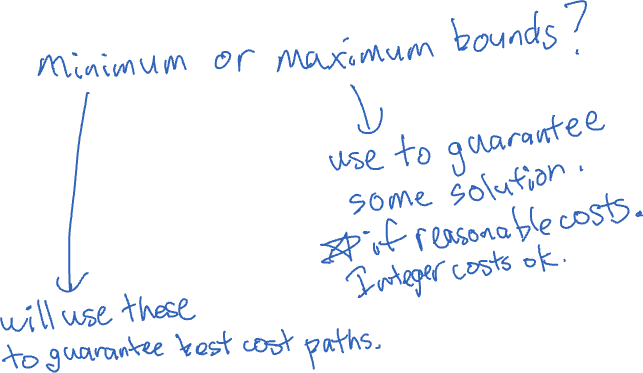 minimum or maximum bounds?
use to guarantee
some solution.
if reasonable costs.
Integer costs ok.
will use these
to guarantee best cost paths.